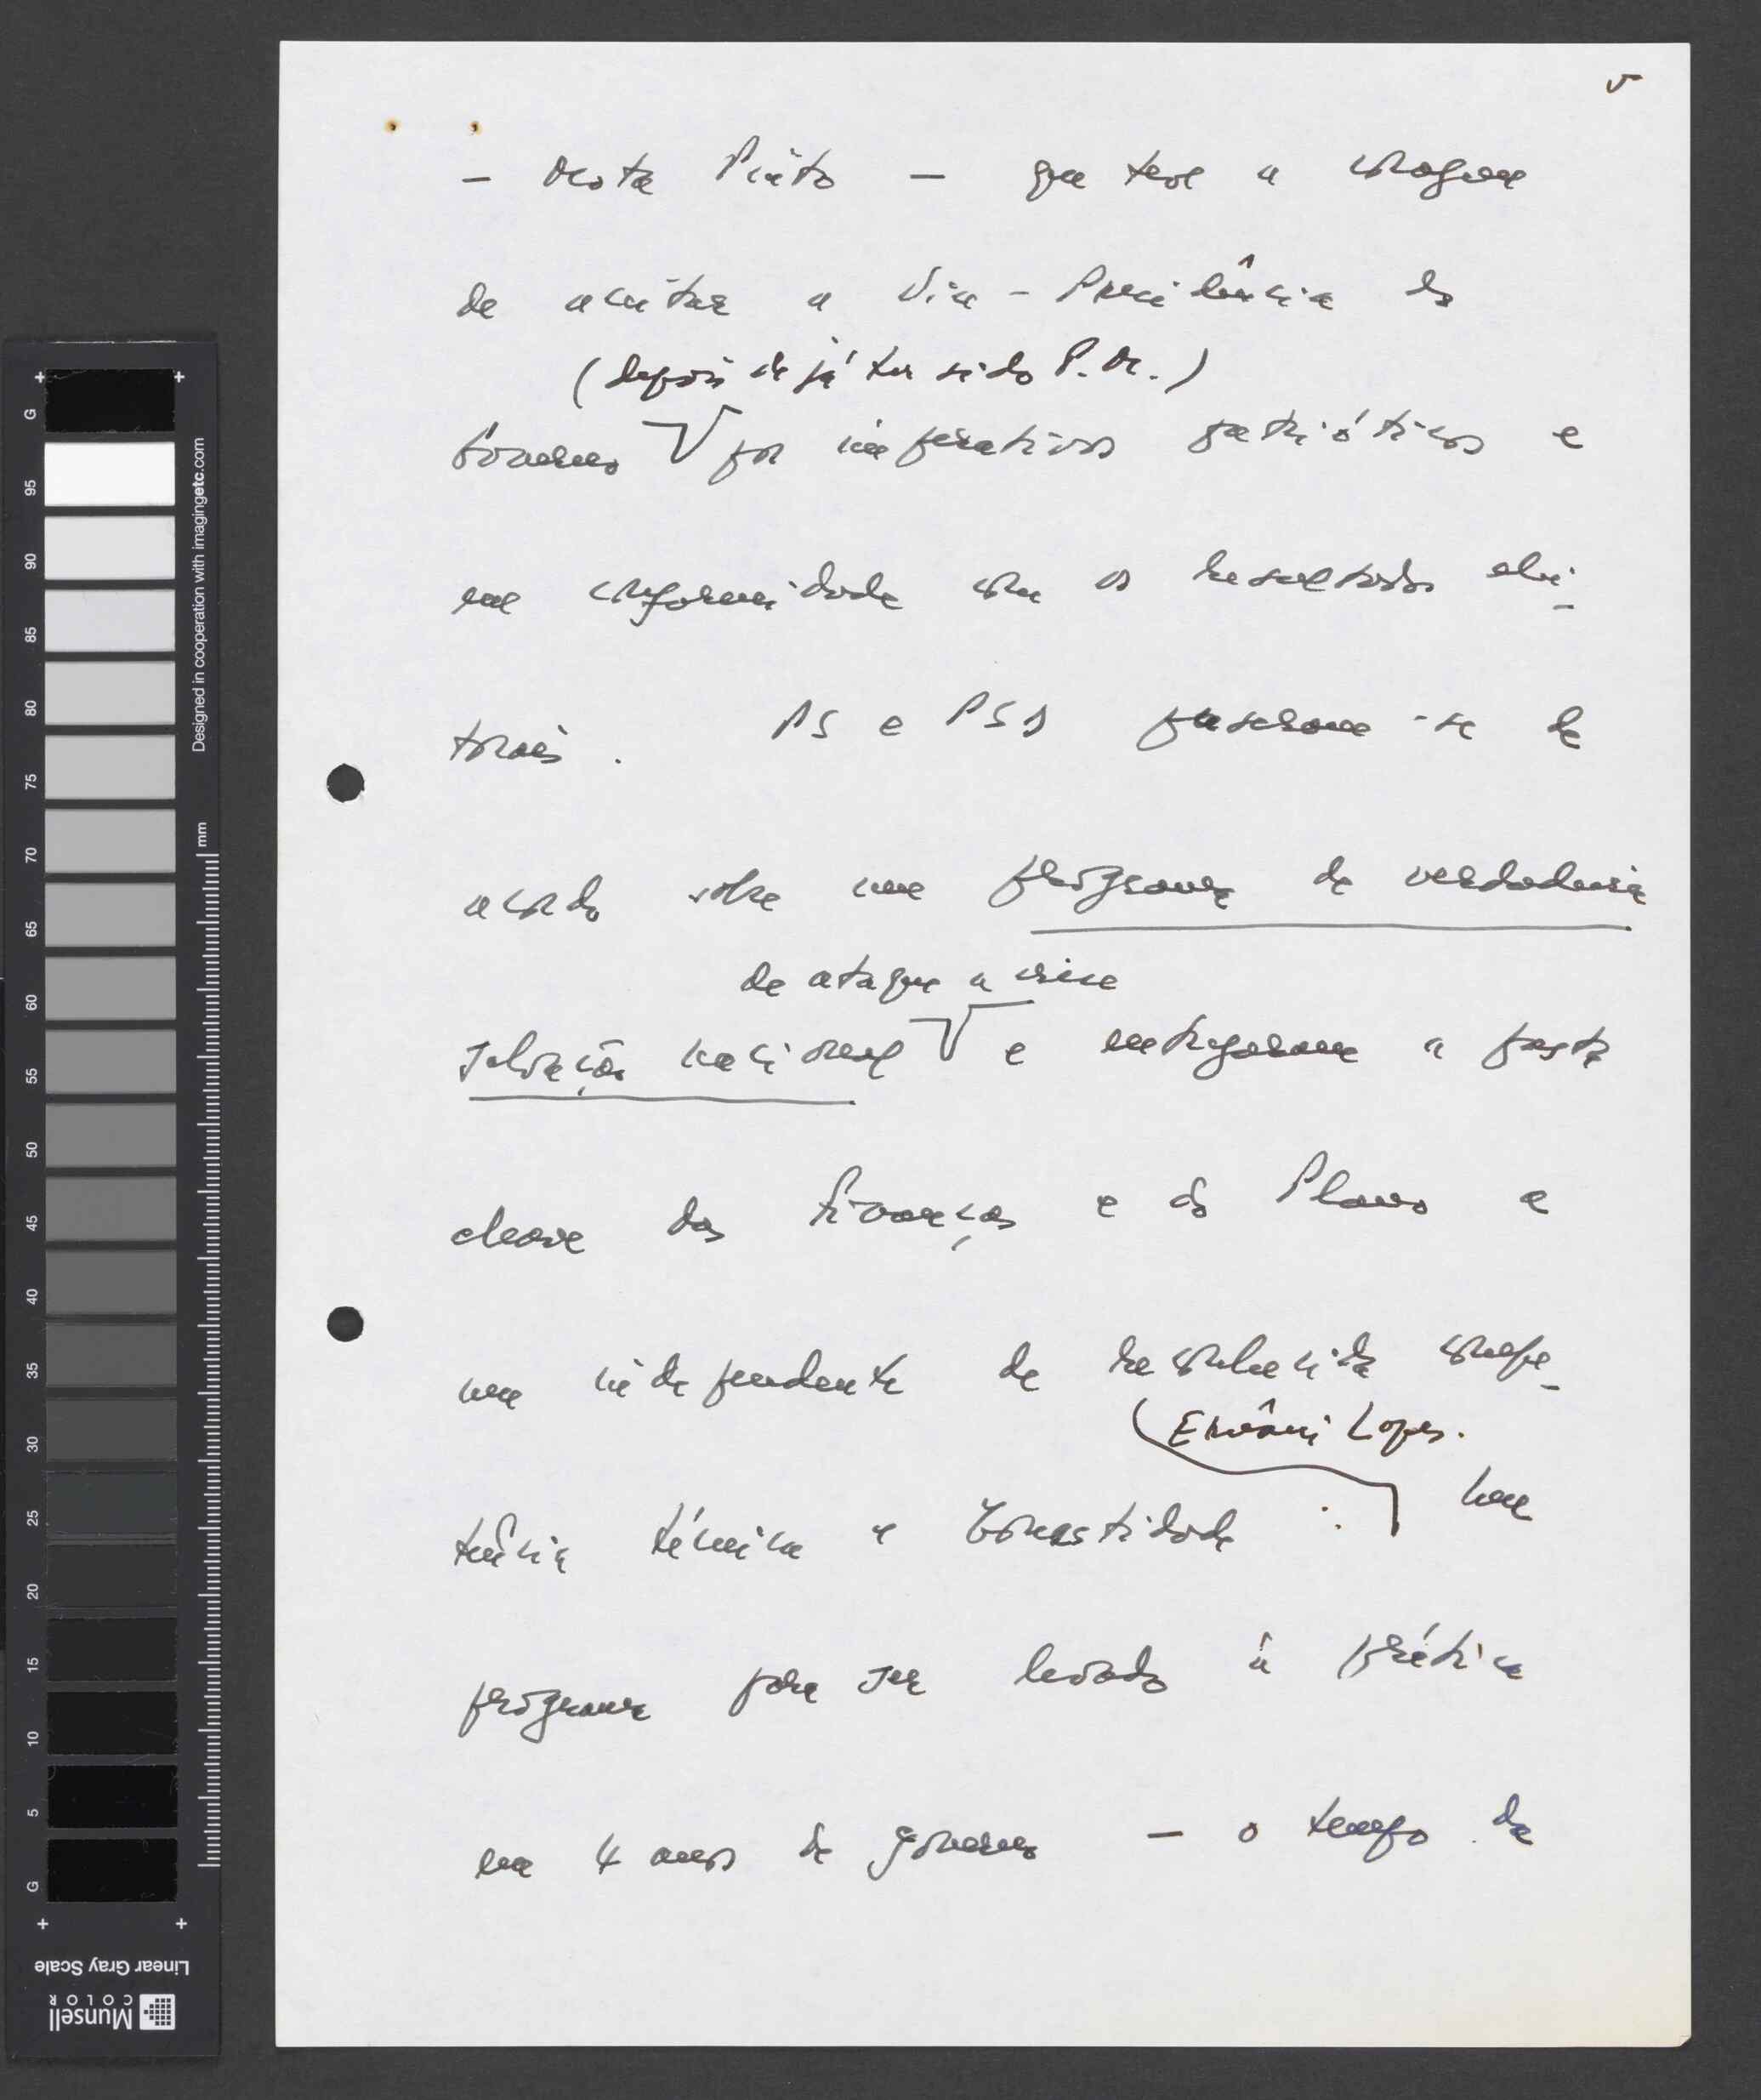 5
— Mota Pinto — que teve a coragem
de aceitar a Vice-Presidência do
(depois de já ter sido P.M.)
Governo por imperativos patrióticos e
em conformidade com os resultados elei-
torais. PS e PSD puseram-se de
acordo sobre um programa de verdadeira
de ataque a crise
salvação nacional e entregaram a pasta
chave das Finanças e do Plano a
um independente de reconhecida compe-
(Ernâni Lopes.
tência técnica e honestidade : Um
programa para ser levado à prática
em 4 anos de governo — o tempo de
G 95 90 85 80 75 70 65 60 55 50 45 40 35 30 25 20 15 10 5 G
Designed in cooperation with imagingetc.com
mm
Linear Gray Scale
Munsell
COLOR